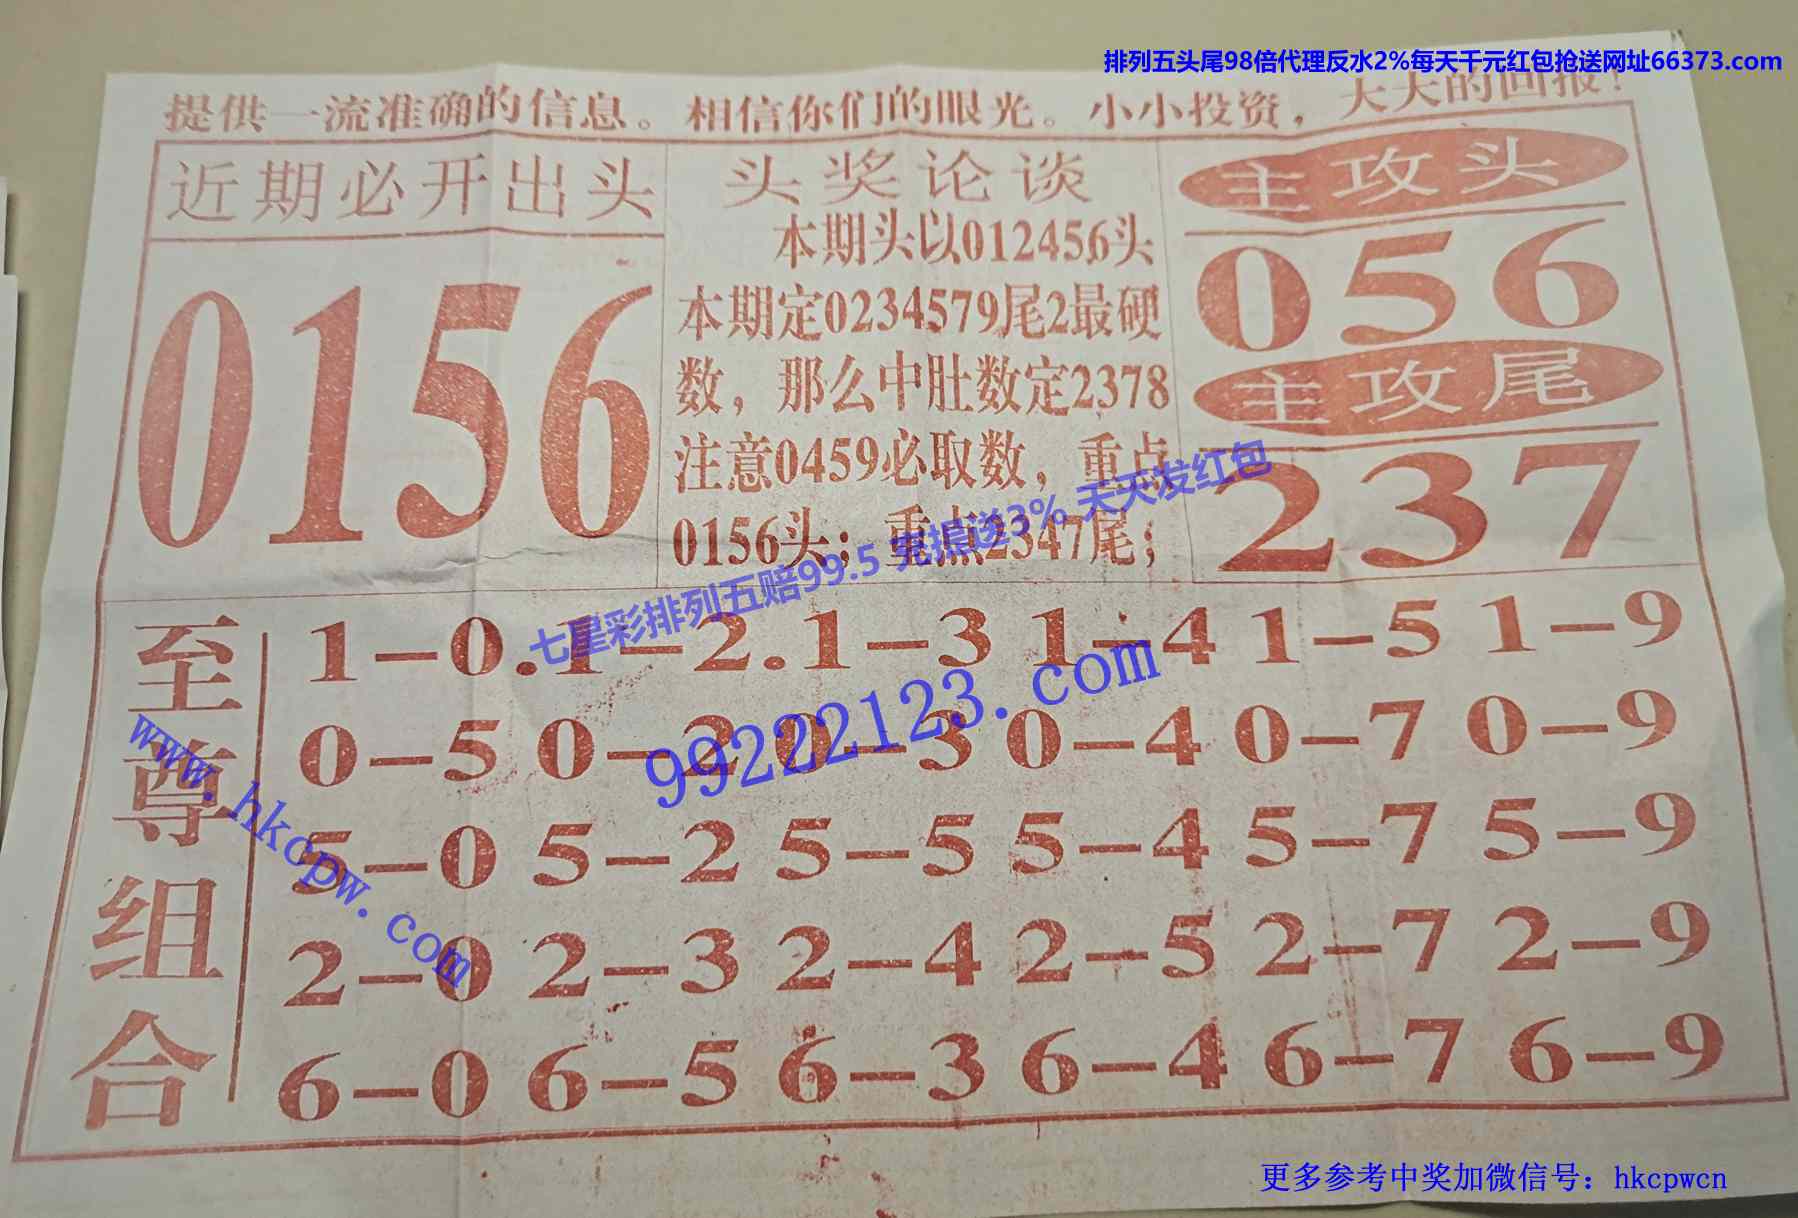 排列五头尾98倍代理反水2%每天千元红包抢送网址66373.com
提供一流准确的信息。相信你们的眼光。小小投资，大大的回报！
近期必开出头
0156
头奖论谈
本期头以012456头
本期定0234579尾2最硬
数，那么中肚数定2378
注意0459必取数，重点
0156头；重点2347尾；
主攻头
056
主攻尾
237
至尊组合
1-0.1-2.1-3 1-4 1-5 1-9
0-5 0-2 0-3 0-4 0-7 0-9
5-0 5-2 5-5 5-4 5-7 5-9
2-0 2-3 2-4 2-5 2-7 2-9
6-0 6-5 6-3 6-4 6-7 6-9
七星彩排列五赔99.5 充提送3% 天天发红包
99222123.com
www.hkcpw.com
更多参考中奖加微信号：hkcpwcn